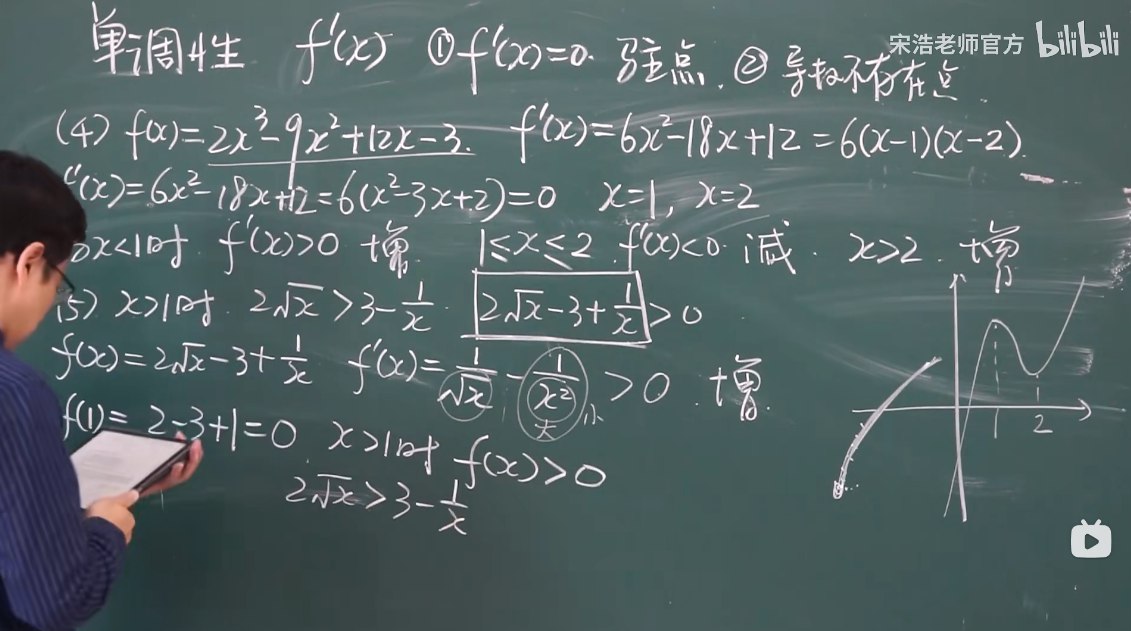 单调性 f'(x) ①f'(x)=0. 驻点. ② 导数不存在点.
宋浩老师官方 bilibili
(4) f(x)=2x³-9x²+12x-3. f'(x)=6x²-18x+12=6(x-1)(x-2).
'(x)=6x²-18x+12=6(x²-3x+2)=0 x=1, x=2
x<1时 f'(x)>0 增. 1≤x≤2 f'(x)<0. 减. x>2. 增
(5) x>1时. 2√x>3-1/x. 2√x-3+1/x>0
f(x)=2√x-3+1/x f'(x)=1/√x-1/x²>0 增.
大 小
f(1)=2-3+1=0 x>1时 f(x)>0
2√x>3-1/x
1 2